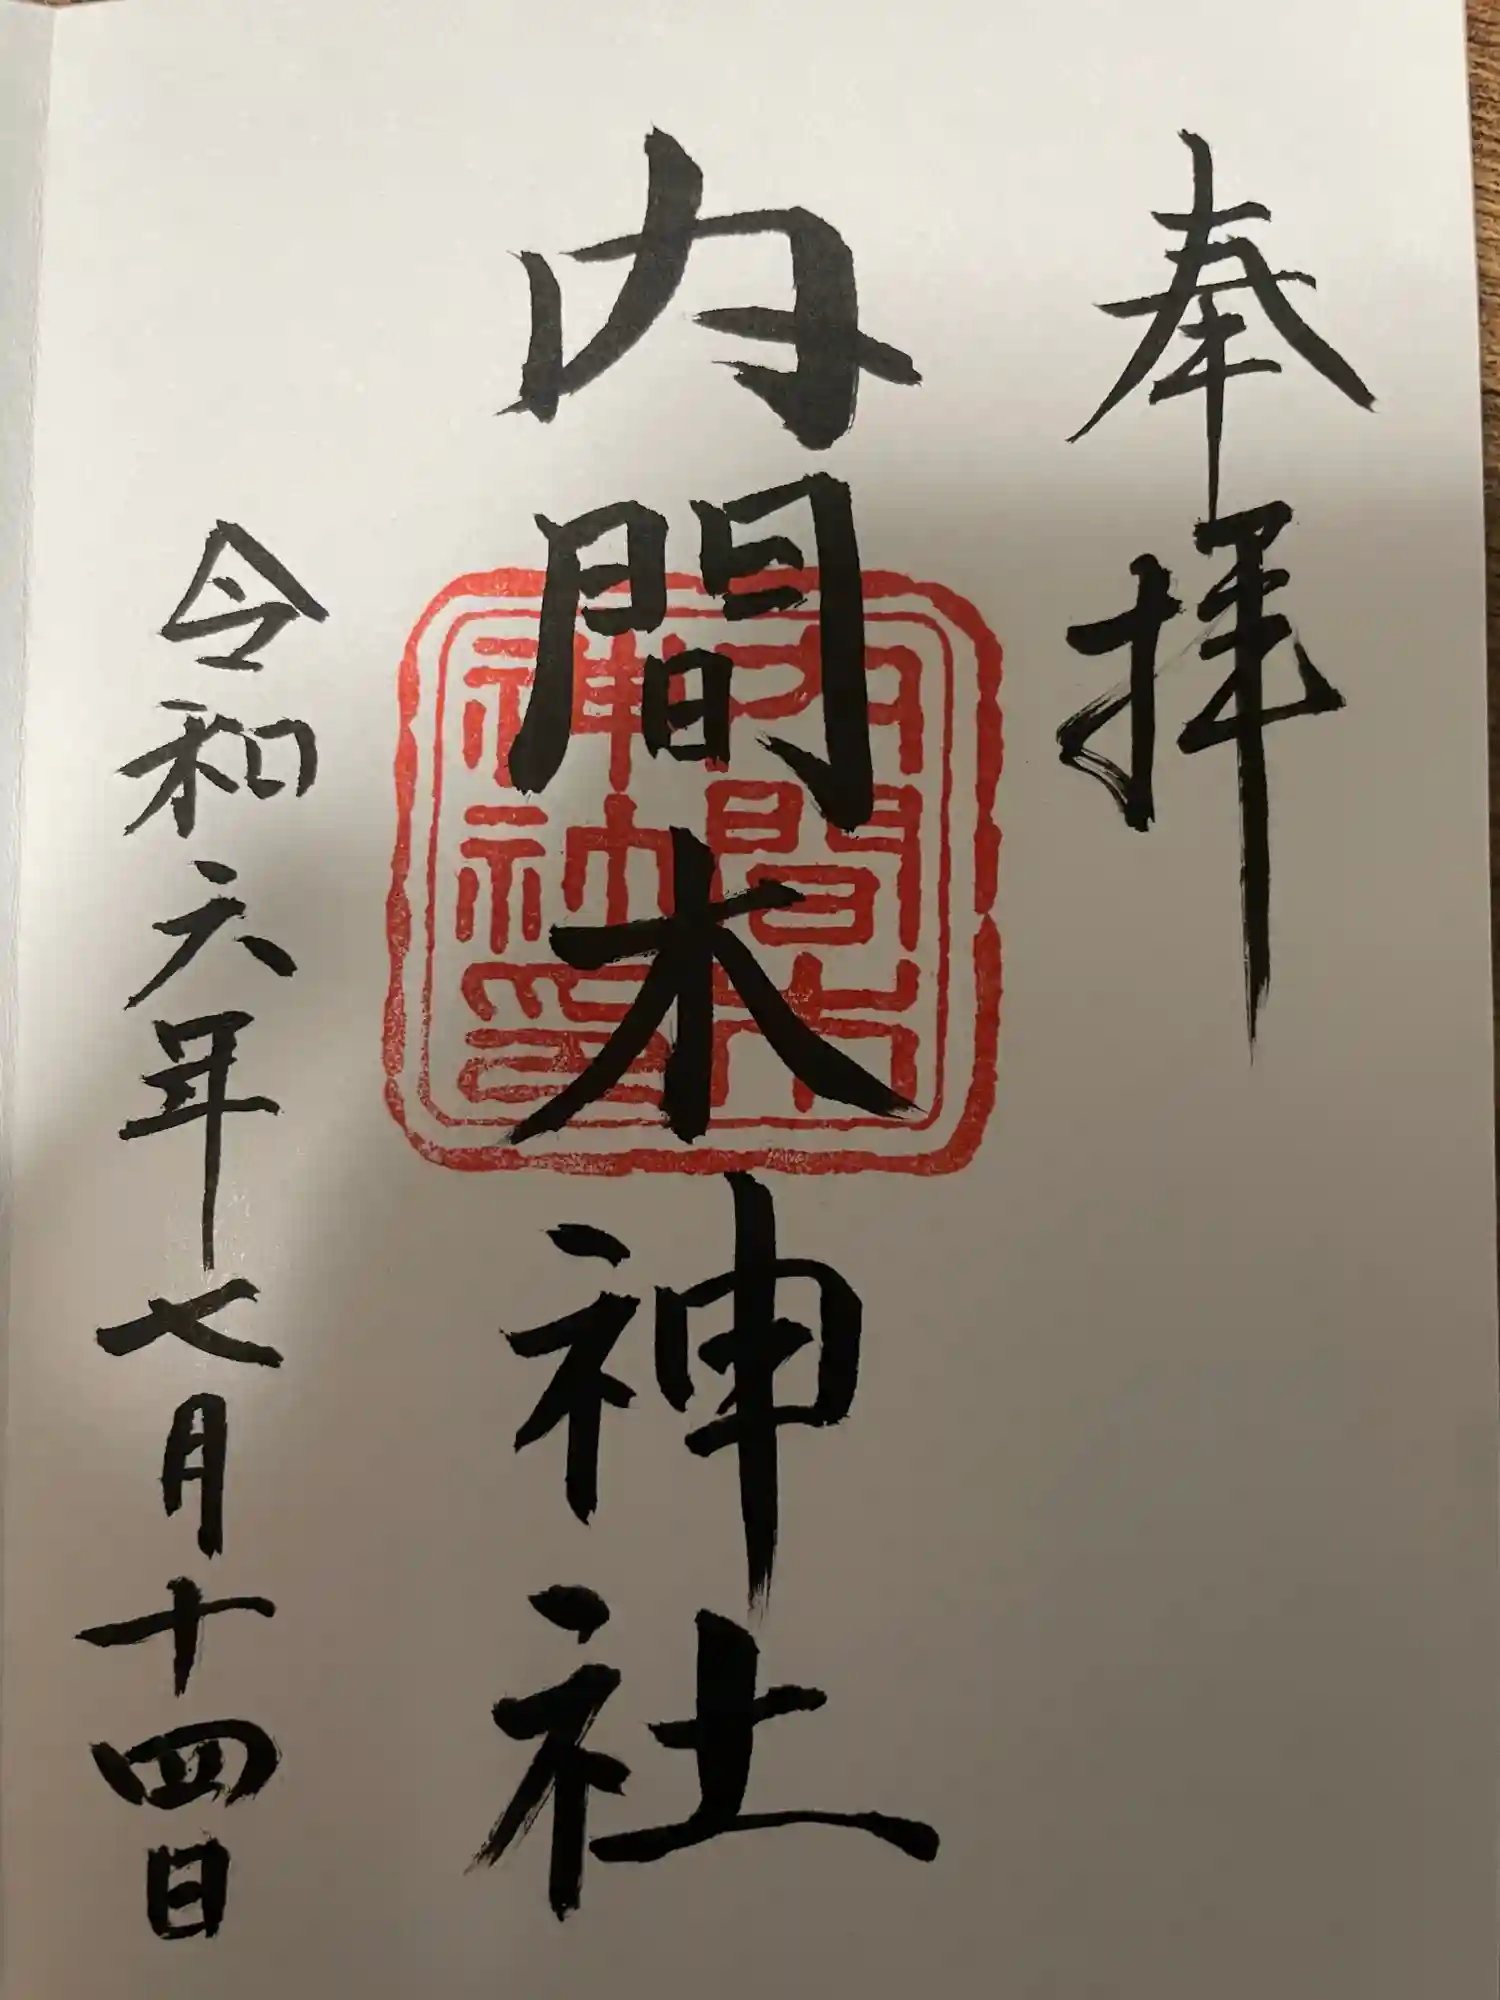 奉拝
内間木神社
内間木
神社印
令和六年七月十四日